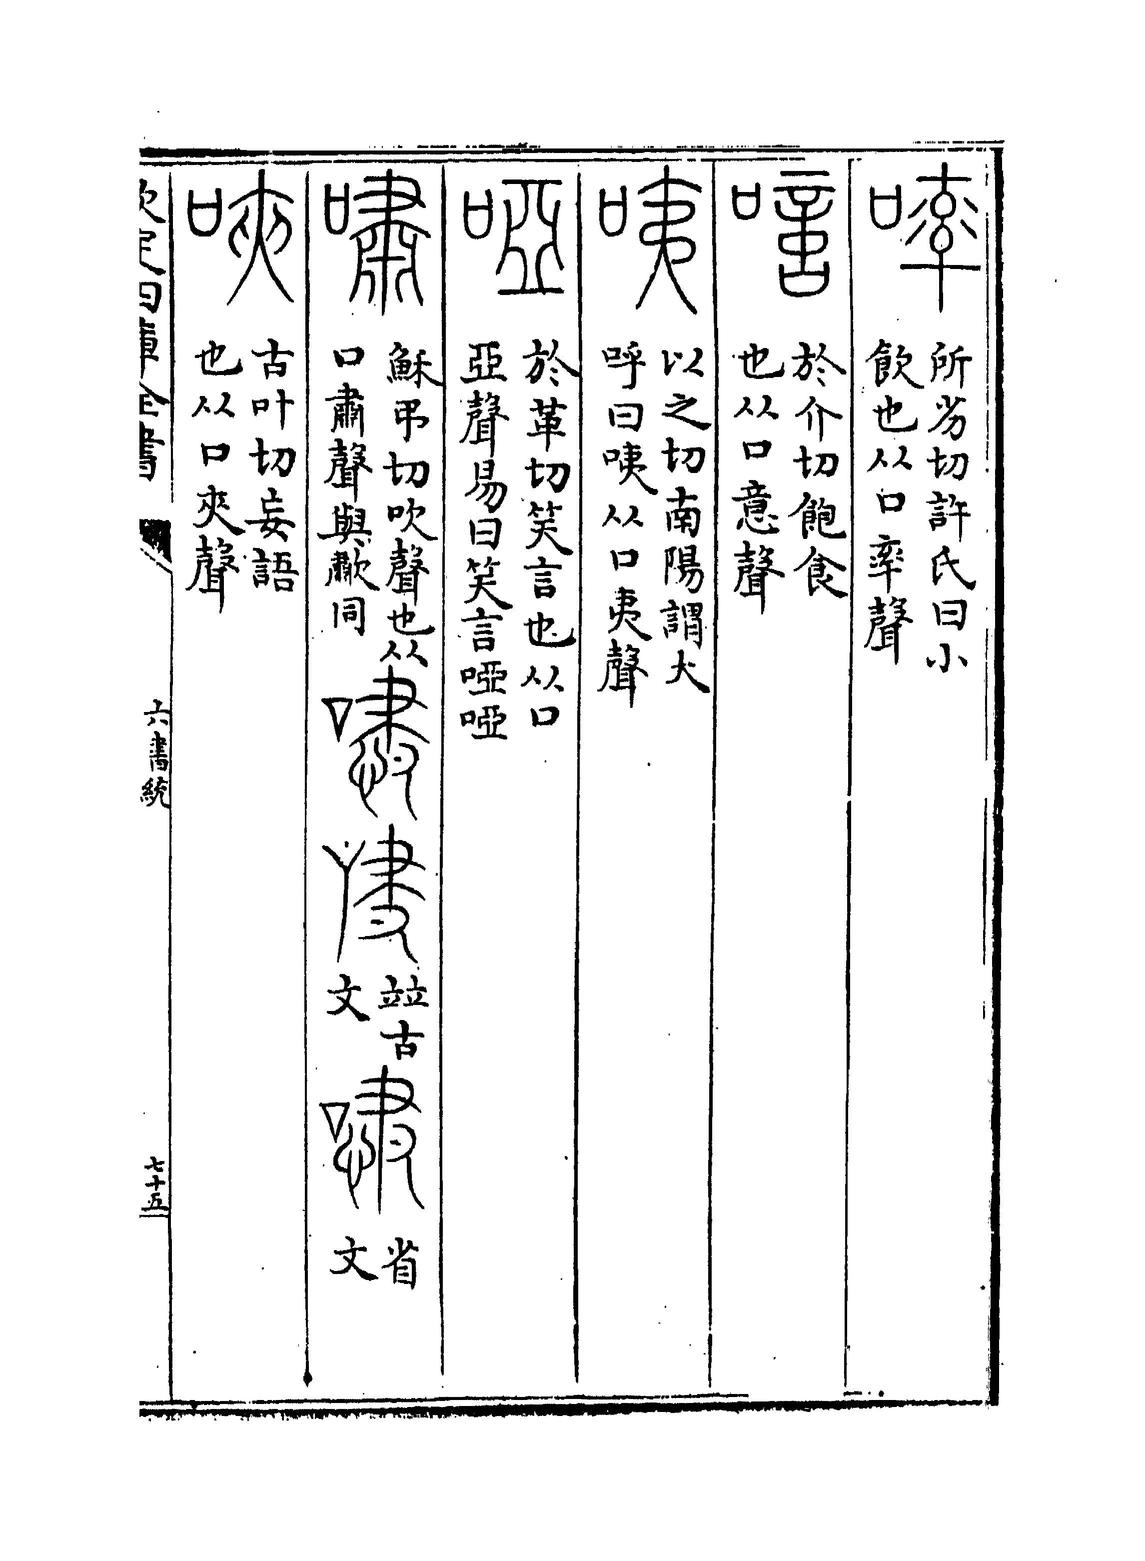 㗐 所劣切許氏曰小
飲也从口率聲
噫 於介切飽食
也从口意聲
咦 以之切南陽謂大
呼曰咦从口夷聲
啞 於革切笑言也从口
亞聲易曰笑言啞啞
嘯 穌弔切吹聲也从
口肅聲與歗同
竝古
文
省
文
唊 古叶切妄語
也从口夾聲
欽定四庫全書
六書統
七十五